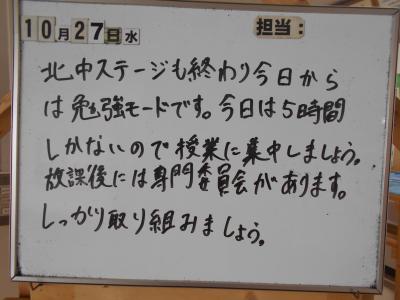 10月27日水 担当：
北中ステージも終わり今日から
は勉強モードです。今日は5時間
しかないので授業に集中しましょう。
放課後には専門委員会があります。
しっかり取り組みましょう。